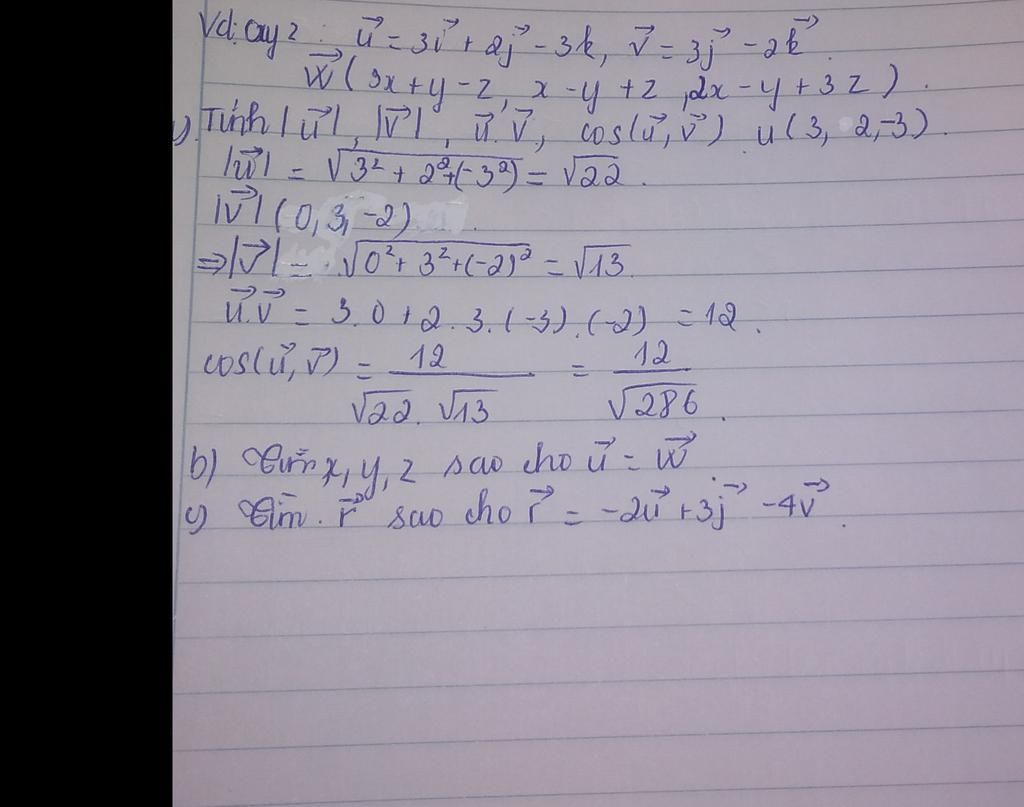 Vd: Oxyz : u⃗ = 3i⃗ + 2j⃗ - 3k, v⃗ = 3j⃗ - 2k⃗
w⃗ (3x + y - z, x - y + z, 2x - y + 3z).
Tính |u⃗|, |v⃗|, u⃗.v⃗, cos(u⃗, v⃗) u(3, 2, -3).
|u⃗| = √(3² + 2² + (-3²)) = √22.
|v⃗| (0, 3, -2)
⇒ |v⃗| = √(0² + 3² + (-2)²) = √13.
u⃗.v⃗ = 3.0 + 2.3.(-3).(-2) = 12.
cos(u⃗, v⃗) = 12/(√22.√13) = 12/√286.
b) Tìm x, y, z sao cho u⃗ = w⃗
c) Tìm r⃗ sao cho r⃗ = -2u⃗ + 3j⃗ - 4v⃗.